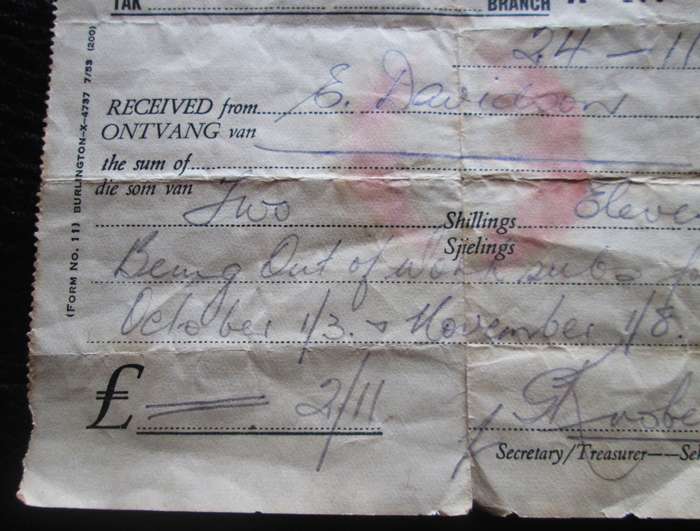 TAK BRANCH
24-11
RECEIVED from E. Davidson
ONTVANG van
the sum of
die som van Two Shillings Eleve
Sjielings
Being Out of Work subs
October 1/3. & November 1/8.
£ 2/11
Secretary/Treasurer—Se
(FORM No. 11) BURLINGTON-X-4737 7/53 (200)